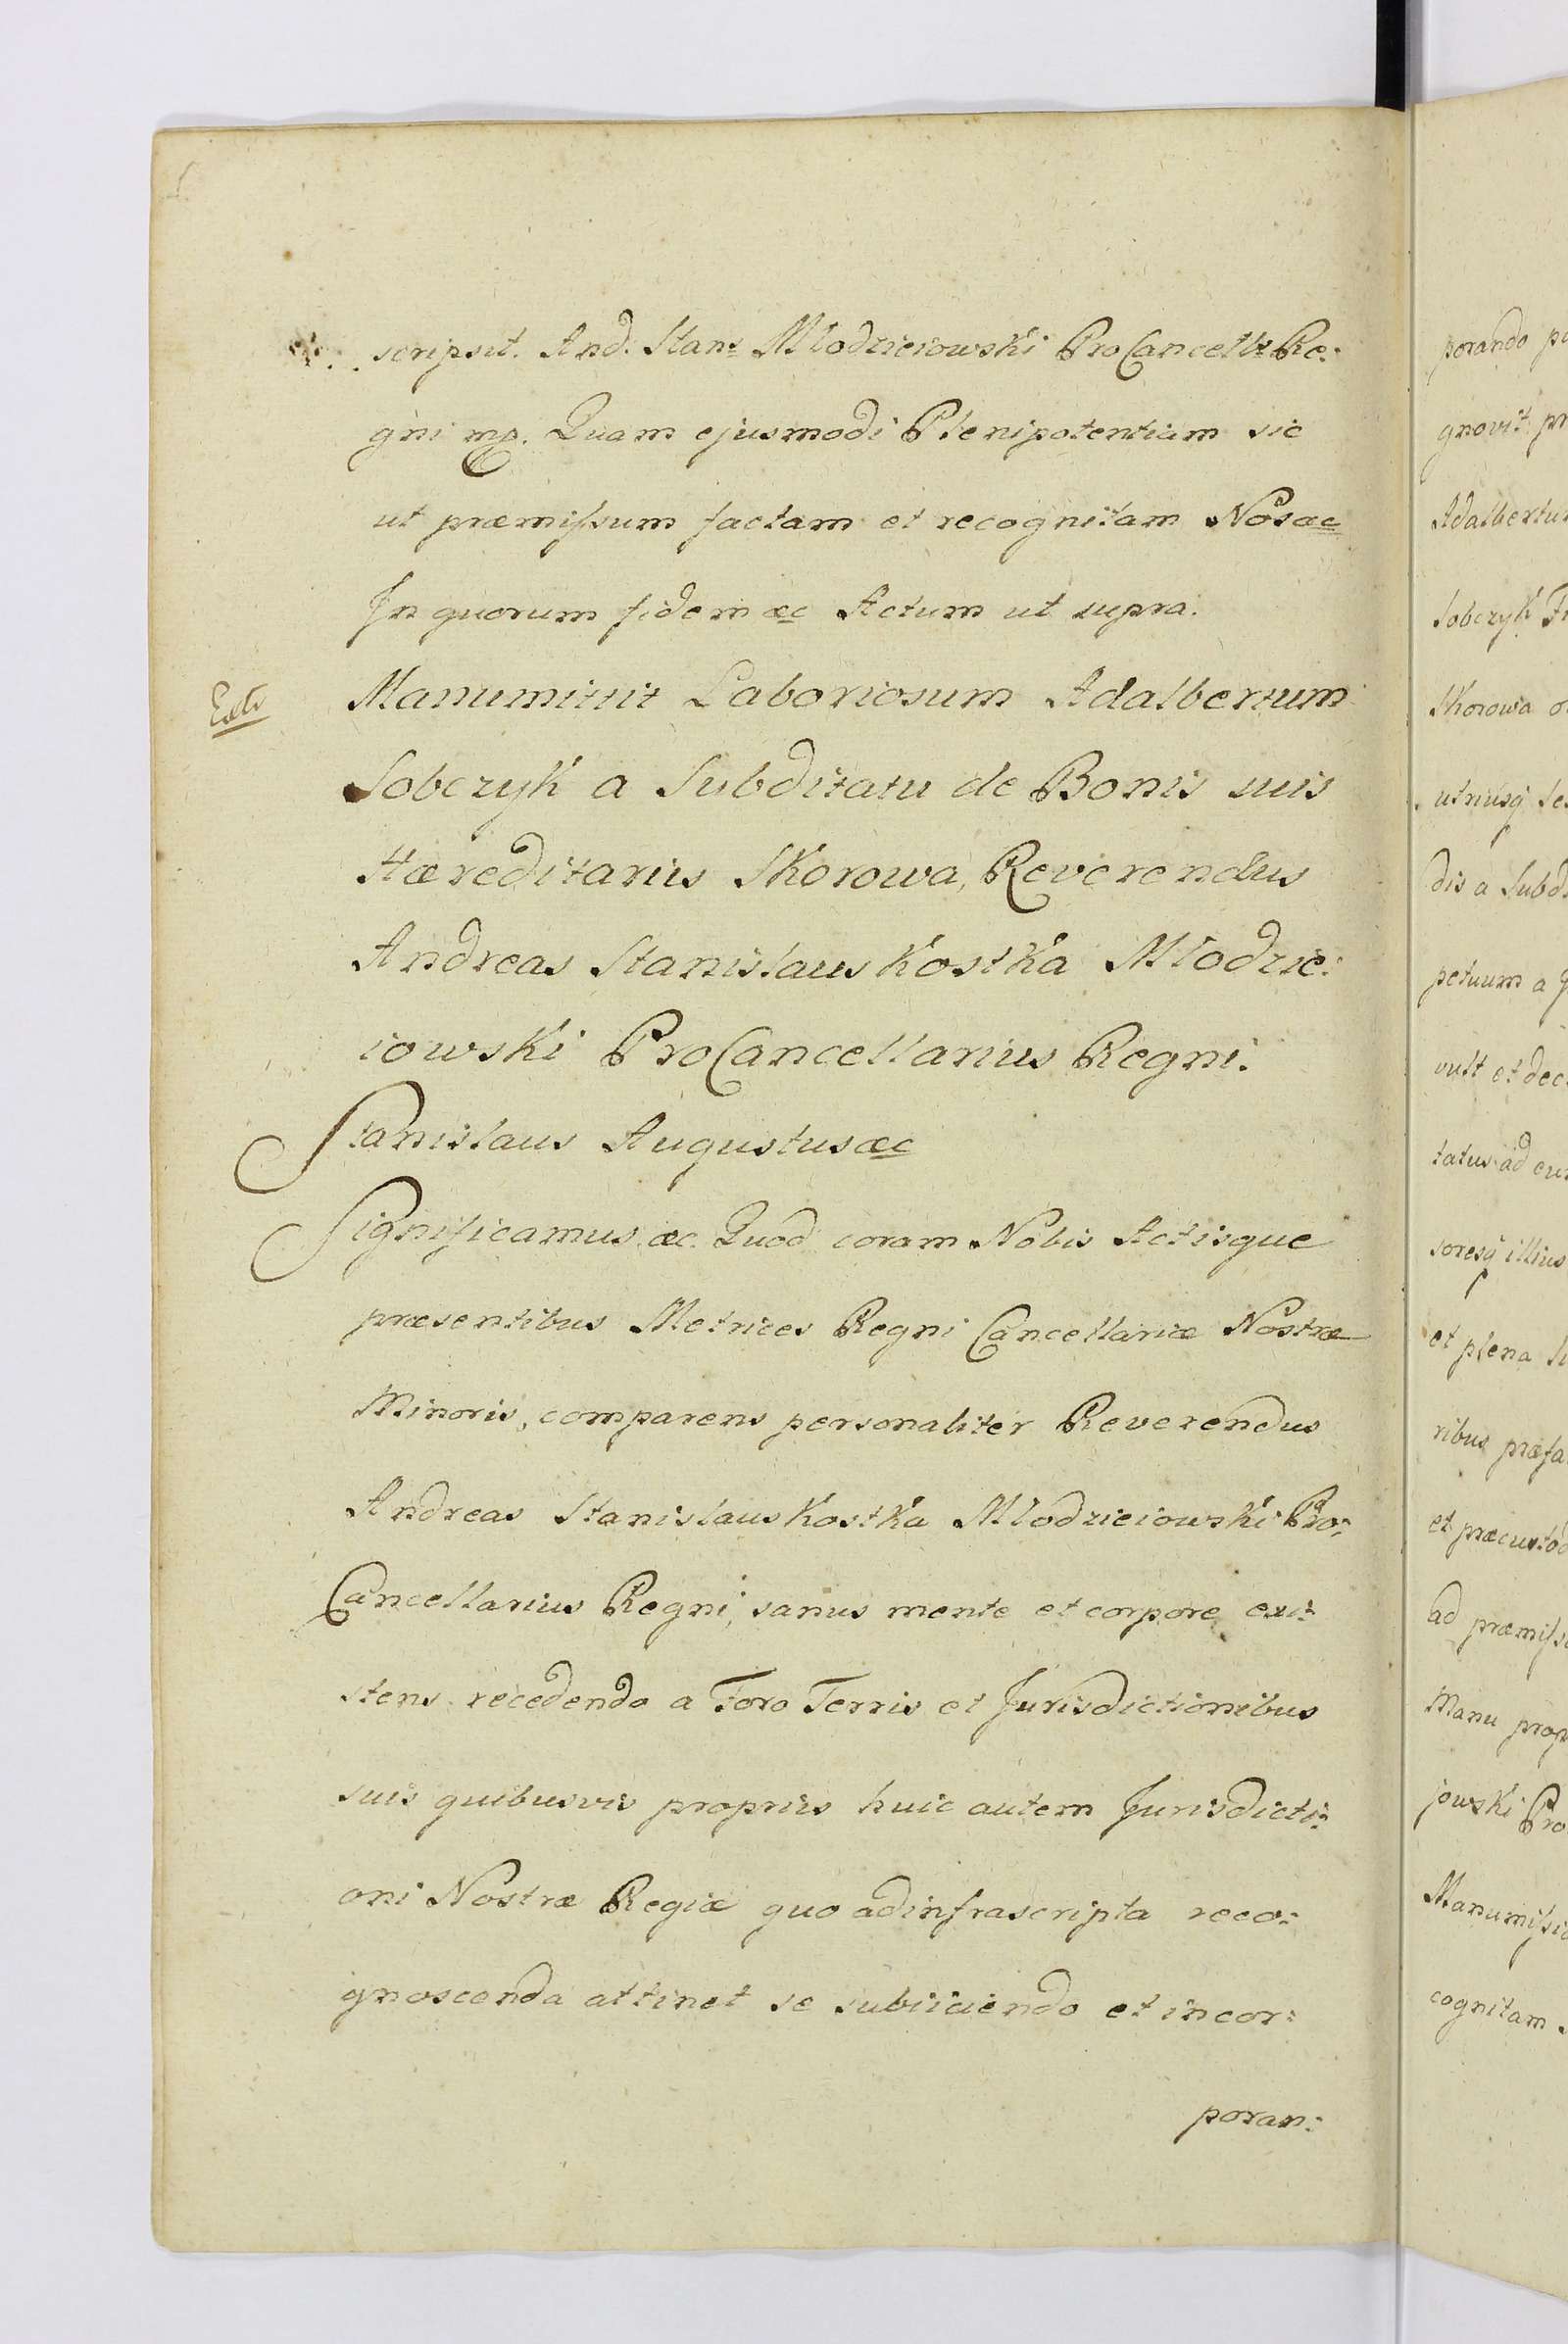 scripsit. And. Stans Mlodzieiowski ProCancells Re:
gni mp. Quam ejusmodi Plenipotentiam sic
ut præmissum factam et recognitam Nos æc
In quorum fidem æc Actum ut supra.
Manumittit Laboriosum Adalbertum
Sobczyk a Subditatu de Bonis suis
Hæreditariis Skorowa, Reverendus
Andreas Stanislaus Kostka Mlodzie:
iowski ProCancellarius Regni.
Stanislaus Augustus æc
Significamus æc. Quod coram Nobis Actisque
præsentibus Metrices Regni Cancellariæ Nostræ
Minoris, comparens personaliter Reverendus
Andreas Stanislaus Kostka Mlodzieiowski Pro:
Cancellarius Regni, sanus mente et corpore exi:
stens recedendo a Foro Terris et Jurisdictionibus
suis quibusvis propriis huic autem Jurisdicti:
oni Nostræ Regiæ quo ad infrascripta reco:
gnoscenda attinet se subiiciendo et incor:
poran:
porando
gnovit
Sobczyk
Skorowa
dis a
petuum a
vult et
tatus ad
illius
et plena
ribus
et
ad
Manu
jowski
cognitam